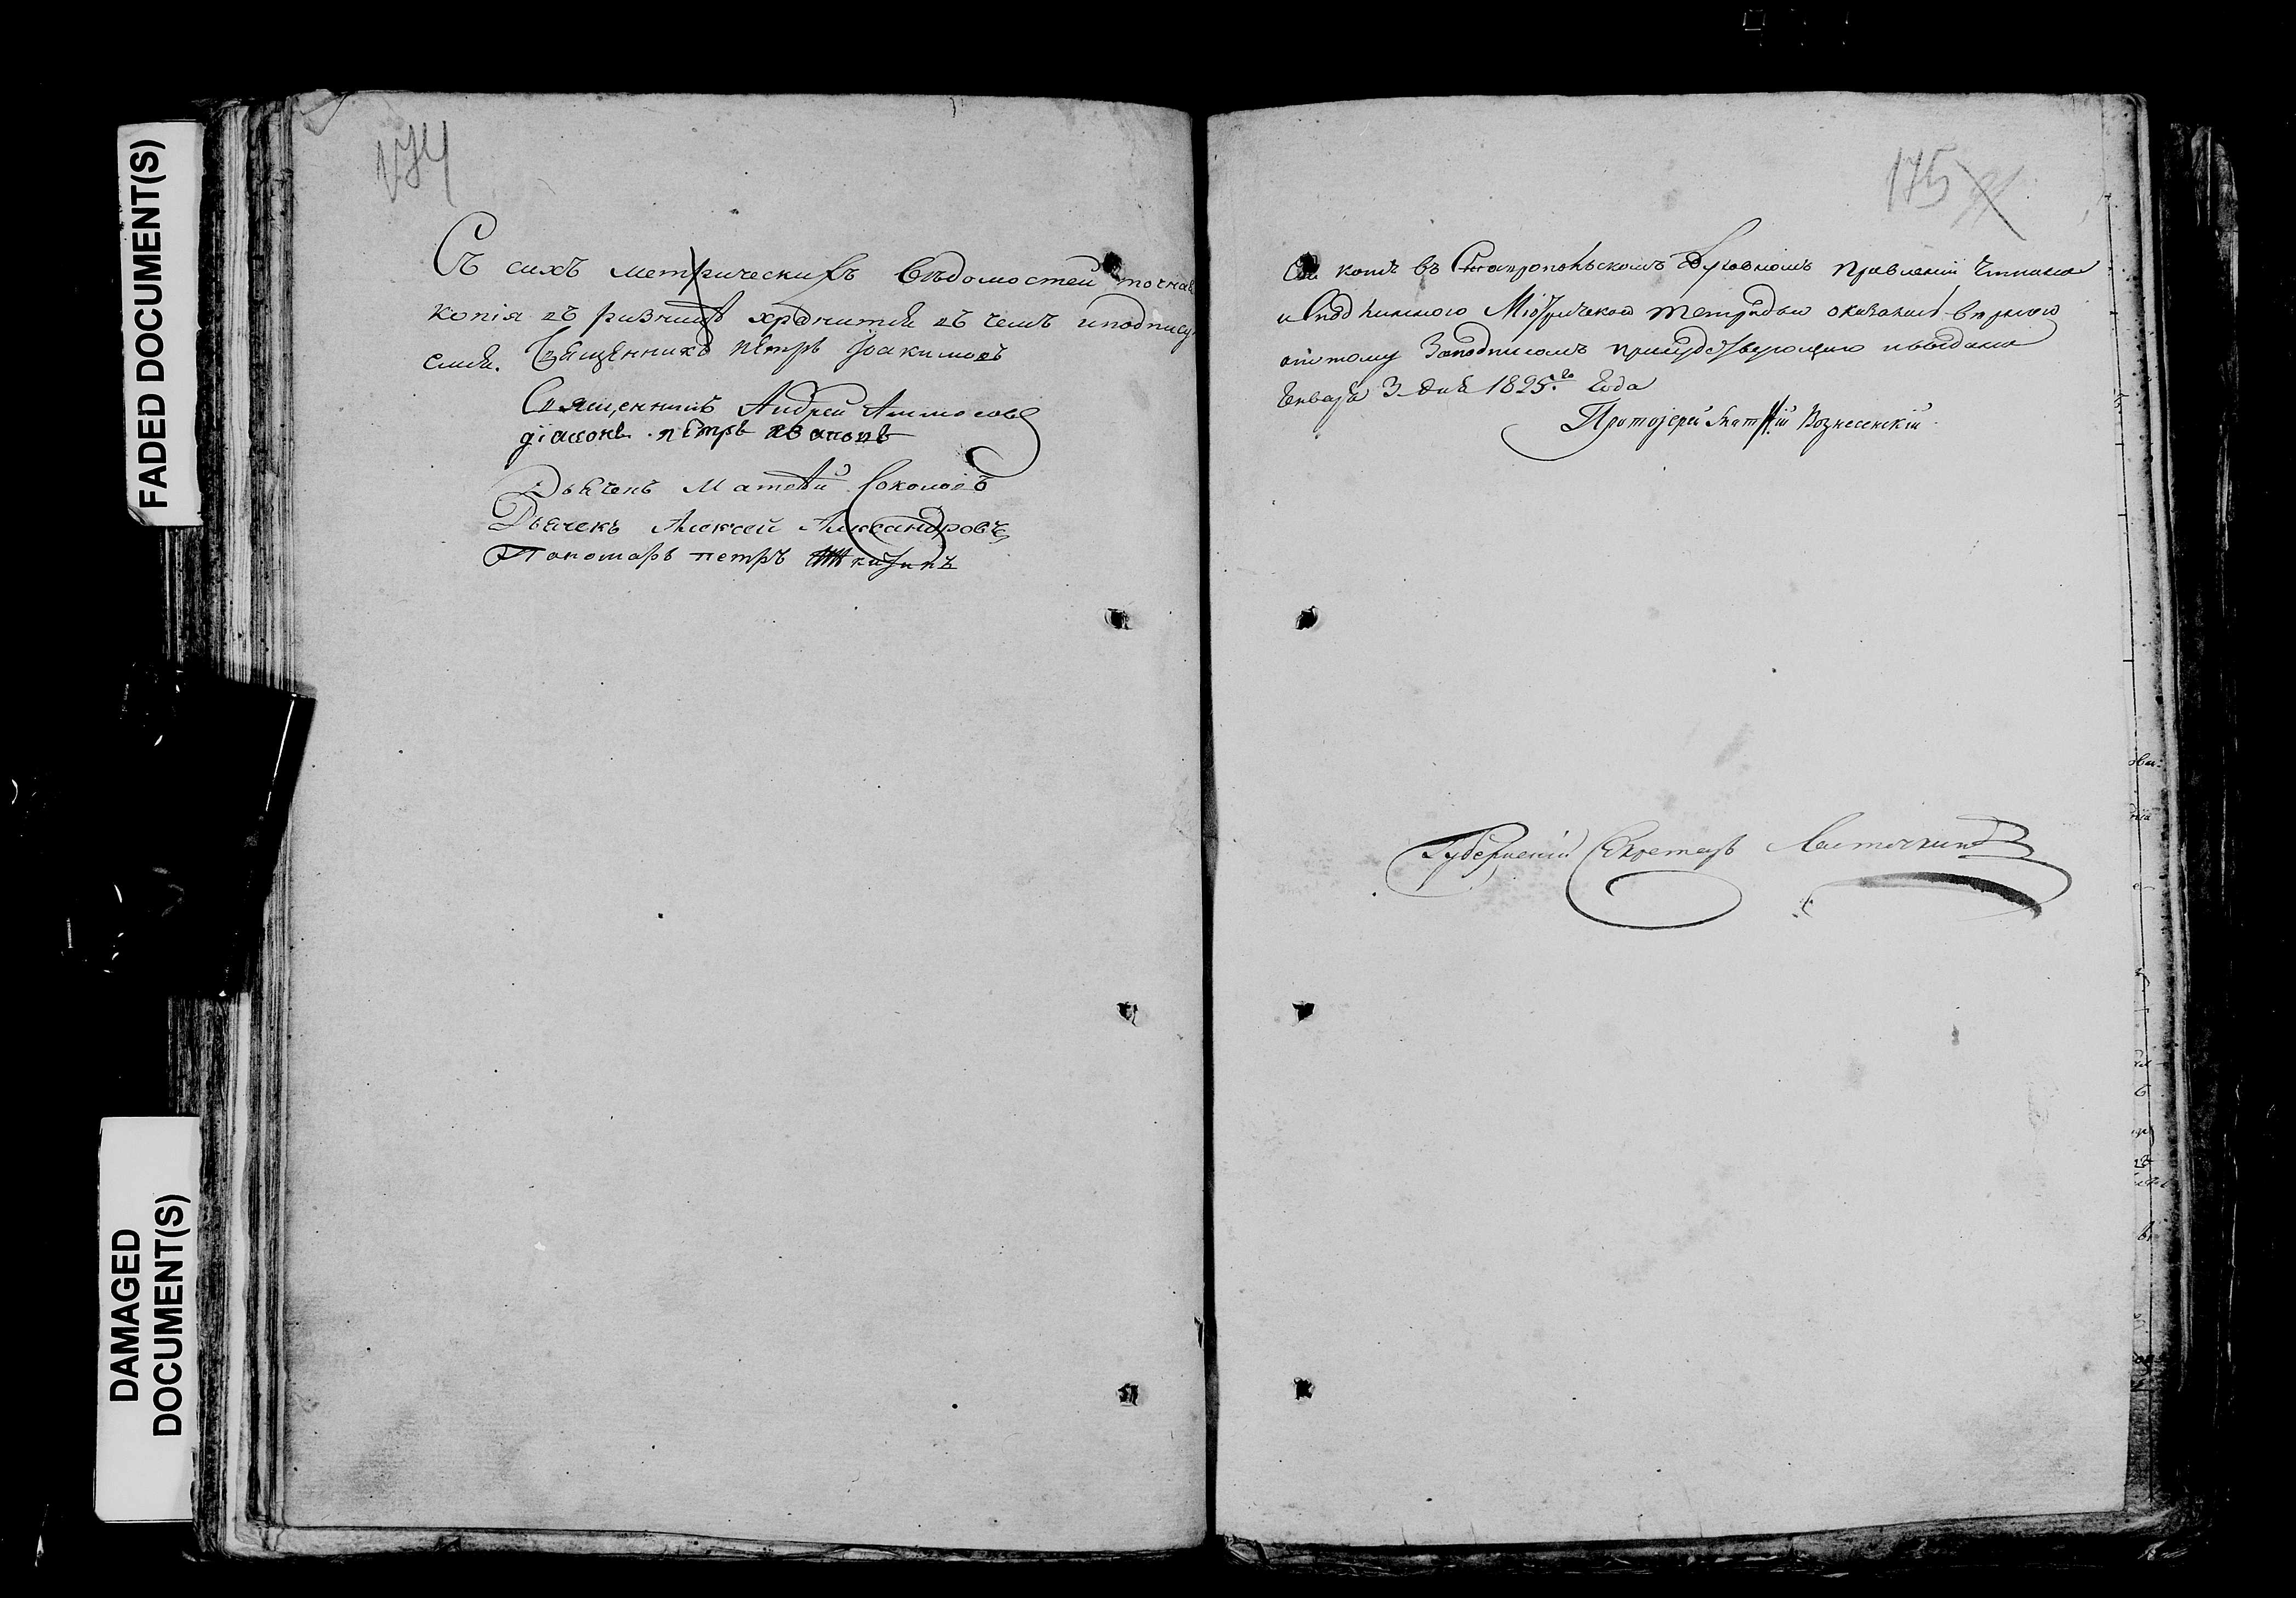 FADED DOCUMENT(S)
DAMAGED
DOCUMENT(S)
174
Съ сихъ метрическихъ Вѣдомостей точная
копія въ ризницѣ хранится въ чемъ и подпису
емся. Священникъ Петръ Іоакимовъ
Священникъ Андрей Аммосовъ
діаконъ петръ
Дьячекъ Матвѣй Соколовъ
Дьячекъ Алексей Александровъ
Пономарь петръ
175
Сіи копіи въ Ставропольскомъ Духовномъ правленіи читаны
и съ подлинною тетрадью оказались вѣрною
потому Заподписомъ присудствующаго и выданы
Генваря 3 дня 1825.го Года
Протоіерей Вознесенскій
Губернскій Секретарь Ласточкинъ